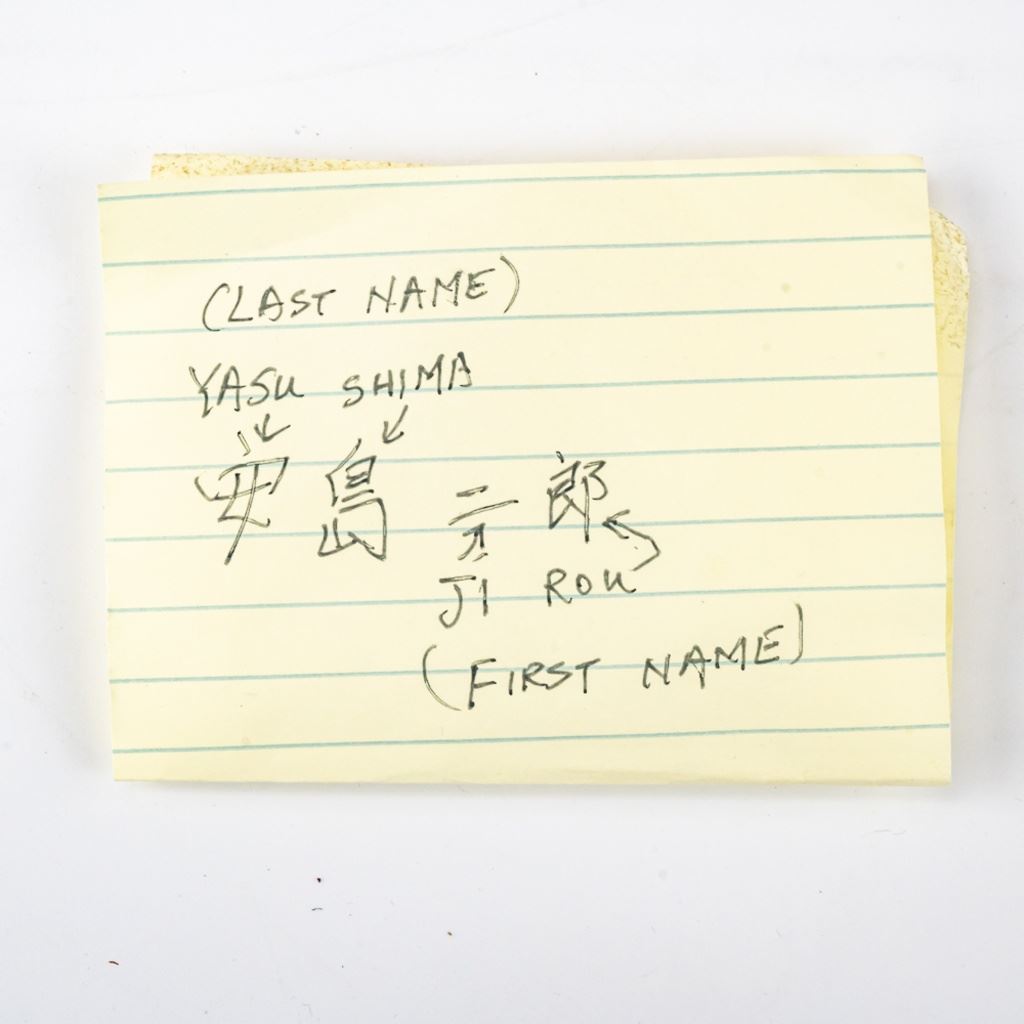 (LAST NAME)
YASU SHIMA
安島 二郎
JI ROU
(FIRST NAME)